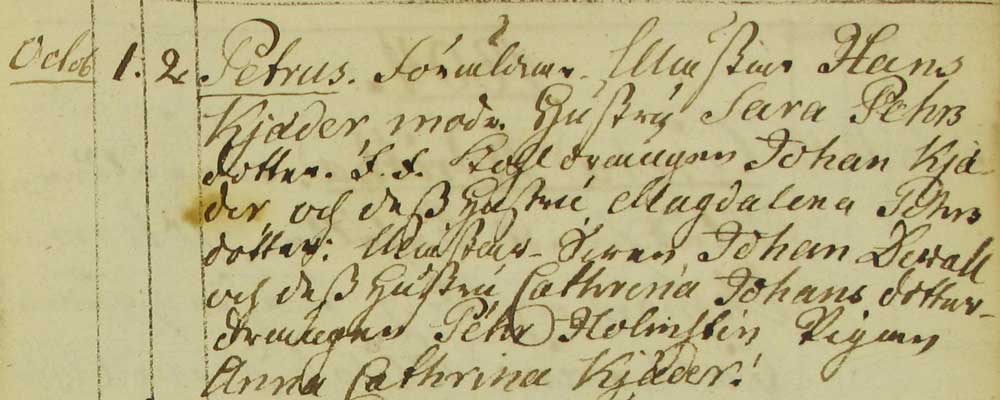 Octob 1. 2 Petrus. Föräldrar. Mästar Hans
Kjäder, modr. Hustru Sara Pehrs
dotter. F. F. Kohldrängen Johan Kjä
der, och dess Hustru Magdalena Pehrs
dotter: Mästar-Svenn Johan Dewall
och dess Hustru Cathrina Johans dotter-
drängen Pehr Holmsten Pigan
Anna Cathrina Kjäder.